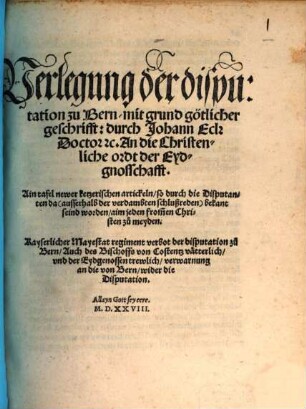 Verlegung der dispu:
tation zu Bern/ mit grund götlicher
geschrifft: durch Johann Eck
Doctor ꝛc. An die Christen-
liche ordt der Eyd-
gnosschafft.
Ain tafel newer ketzerischen artickeln/ so durch die Disputan-
ten da (ausserhalb der verdambten schlußreden) bekant
seind worden/ aim jeden frommen Chri-
sten zů meyden.
Kayserlicher Mayestat regiment verbot der disputation zů
Bern/ Auch des Bischoffs von Costentz vätterlich/
vnd der Eydgenossen trewlich/ verwarnung
an die von Bern/ wider die
Disputation.
Alleyn Gott sey eere.
M. D. XXVIII.